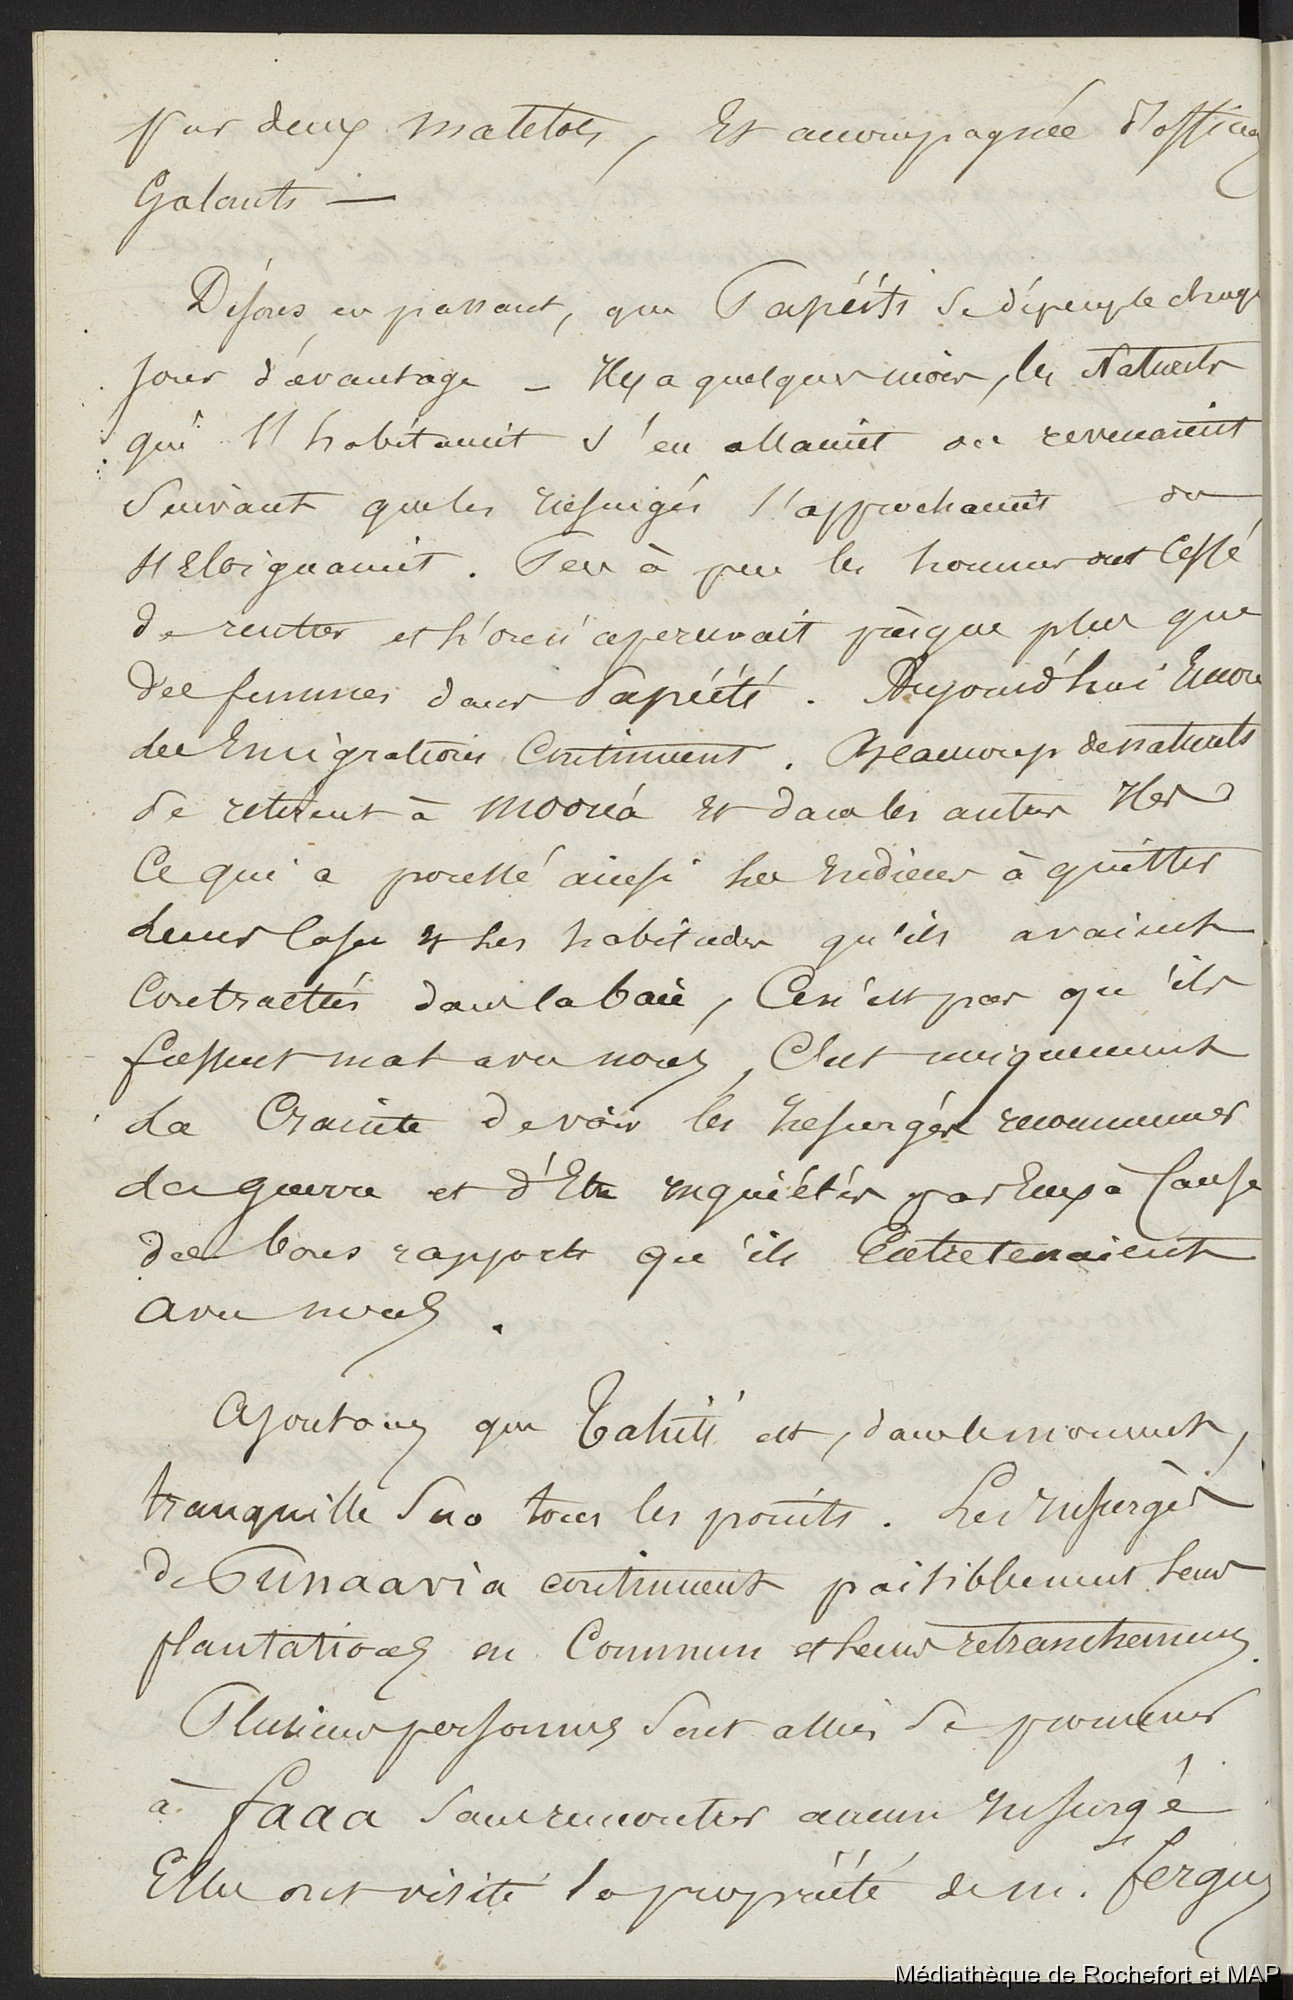 par deux matelots, Et accompagnée d'officiers
Galants —
Disons en passant, que Papéiti se dépeuple chaque
jour d'avantage – Il y a quelques mois, les Naturels
qui l'habitaient s'en allaient ou revenaient
Suivant que les insurgés s'approchaient ou
s'Eloignaient. Peu à peu les hommes ont Cessé
de rentrer et l'on n'apercevait presque plus que
des femmes dans Papéété. Aujourd'hui Encore
les Emigrations Continuent. Beaucoup de naturels
se retirent à Mooréa Et dans les autres Iles
Ce qui a poussé ainsi les Indiens à quitter
Leurs Cases et les habitudes qu'ils avaient
Contractées dans la baie, Ce n'est pas qu'ils
fussent mal avec nous, C'est uniquement
La Crainte de voir les Insurgés recommencer
la guerre et d'Etre inquiétés par Eux à Cause
des bons rapports qu'ils Entretenaient
avec nous.
Ajoutons que Tahiti est, dans le moment,
tranquille Sur tous les points. Les Insurgés
de Punaavia continuent paisiblement leurs
plantations en Commun et leurs retranchemens.
Plusieurs personnes Sont allées Se promener
à faaa Sans rencontrer aucun Insurgé
Elles ont visité la propriété de M. fergus
Médiathèque de Rochefort et MAP